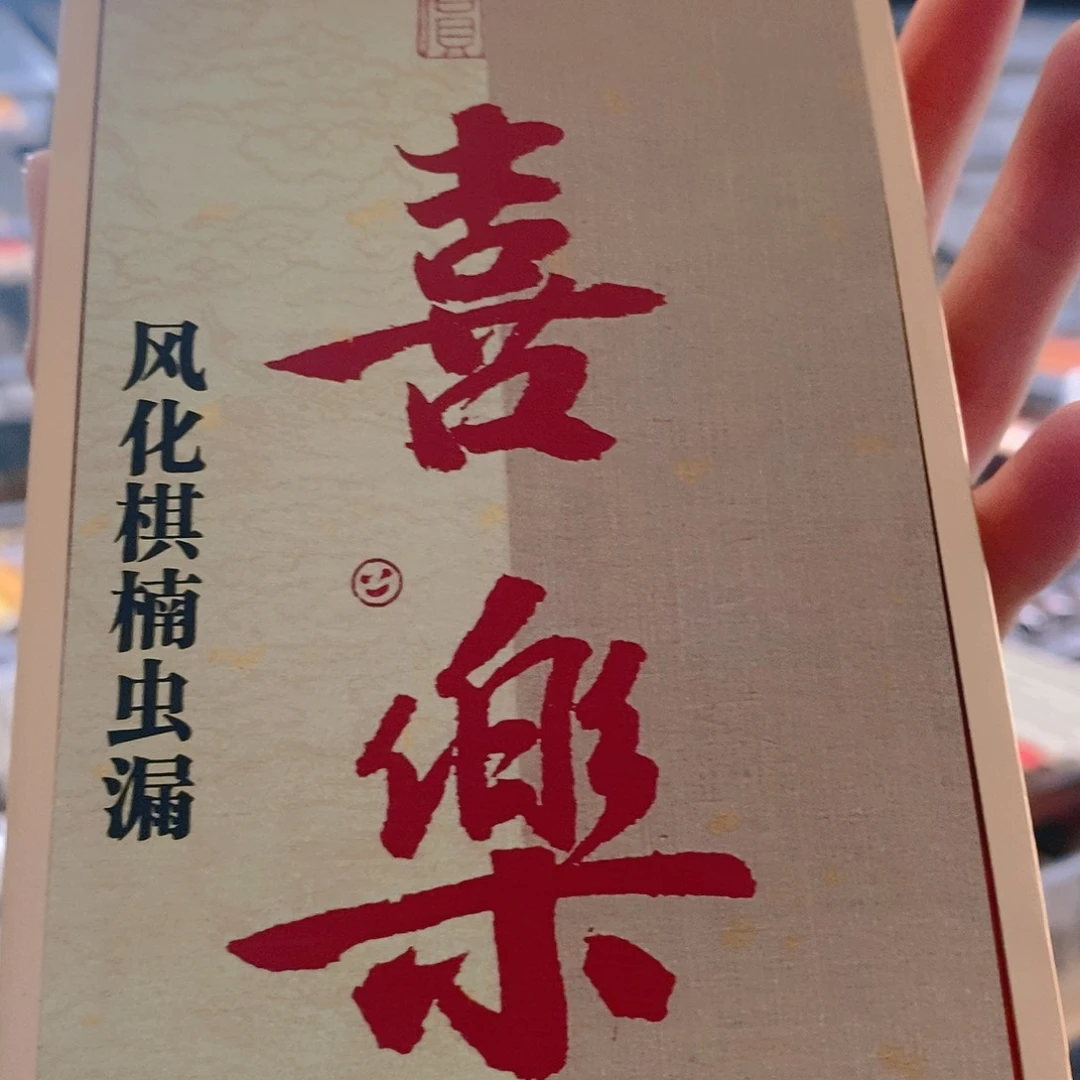 喜樂
风化棋楠虫漏